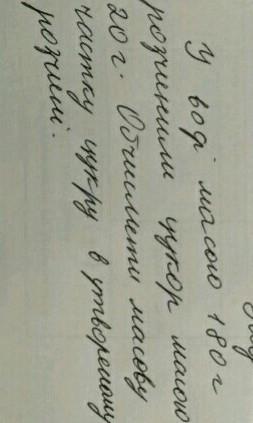 У воді масою 180 г
розчинили цукор масою
20 г. Обчислити масову
частку цукру в утвореному
розчині.